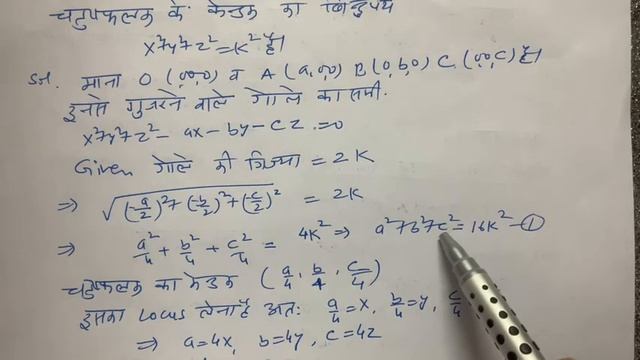 चतुष्फलक के केन्द्रक का बिन्दुपथ
x²+y²+z²=k² है।
Sol. माना O (0,0,0) व A (a,0,0) B (0,b,0) C (0,0,c) है।
इनसे गुजरने वाले गोले का समी.
x²+y²+z² - ax - by - cz = 0
Given गोले की त्रिज्या = 2K
⇒ √(-a/2)²+(-b/2)²+(-c/2)² = 2K
⇒ a²/4 + b²/4 + c²/4 = 4K² ⇒ a²+b²+c² = 16K² -①
चतुष्फलक का केन्द्रक (a/4, b/4, c/4)
इसका Locus लेना है अतः a/4=x, b/4=y, c/4
⇒ a=4x, b=4y, c=4z